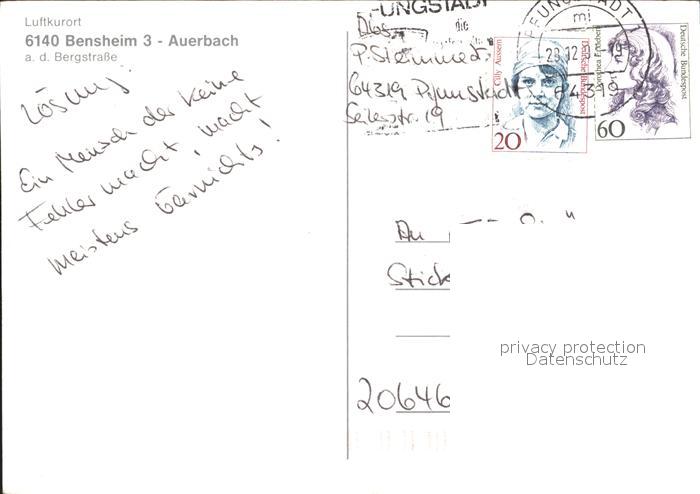 Luftkurort
6140 Bensheim 3 - Auerbach
a. d. Bergstraße
Lösung:
Ein Mensch der keine
Fehler macht, macht
meistens Garnichts!
UNGSTADT
die
Abs.
P. Stemmer
64319 Pfungstadt
Seilerstr. 19
PFUNGSTADT
mi
64319
Cilly Aussem
Deutsche Bundespost
20
Dorothea Erxleben
Deutsche Bundespost
60
An
Stick
20646
privacy protection
Datenschutz